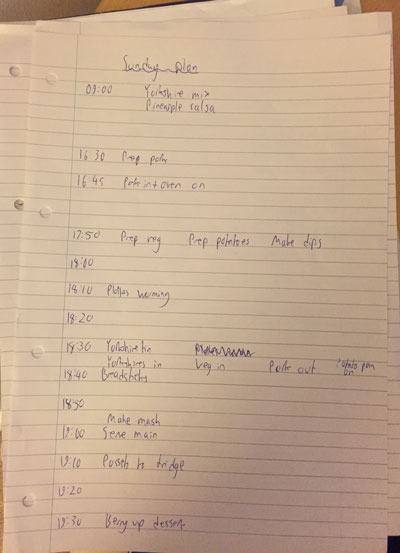 Sunday plan
09:00 Yorkshire mix
Pineapple salsa
16:30 Prep pork
16:45 Pork in + oven on
17:50 Prep veg Prep potatoes Make dips
18:00
18:10 Plates warming
18:20
18:30 Yorkshire tin
Yorkshires in Veg in Pork out Potato pan on
18:40 Breadsticks
18:50
Make mash
19:00 Serve main
19:10 Possets to fridge
19:20
19:30 Bring up dessert